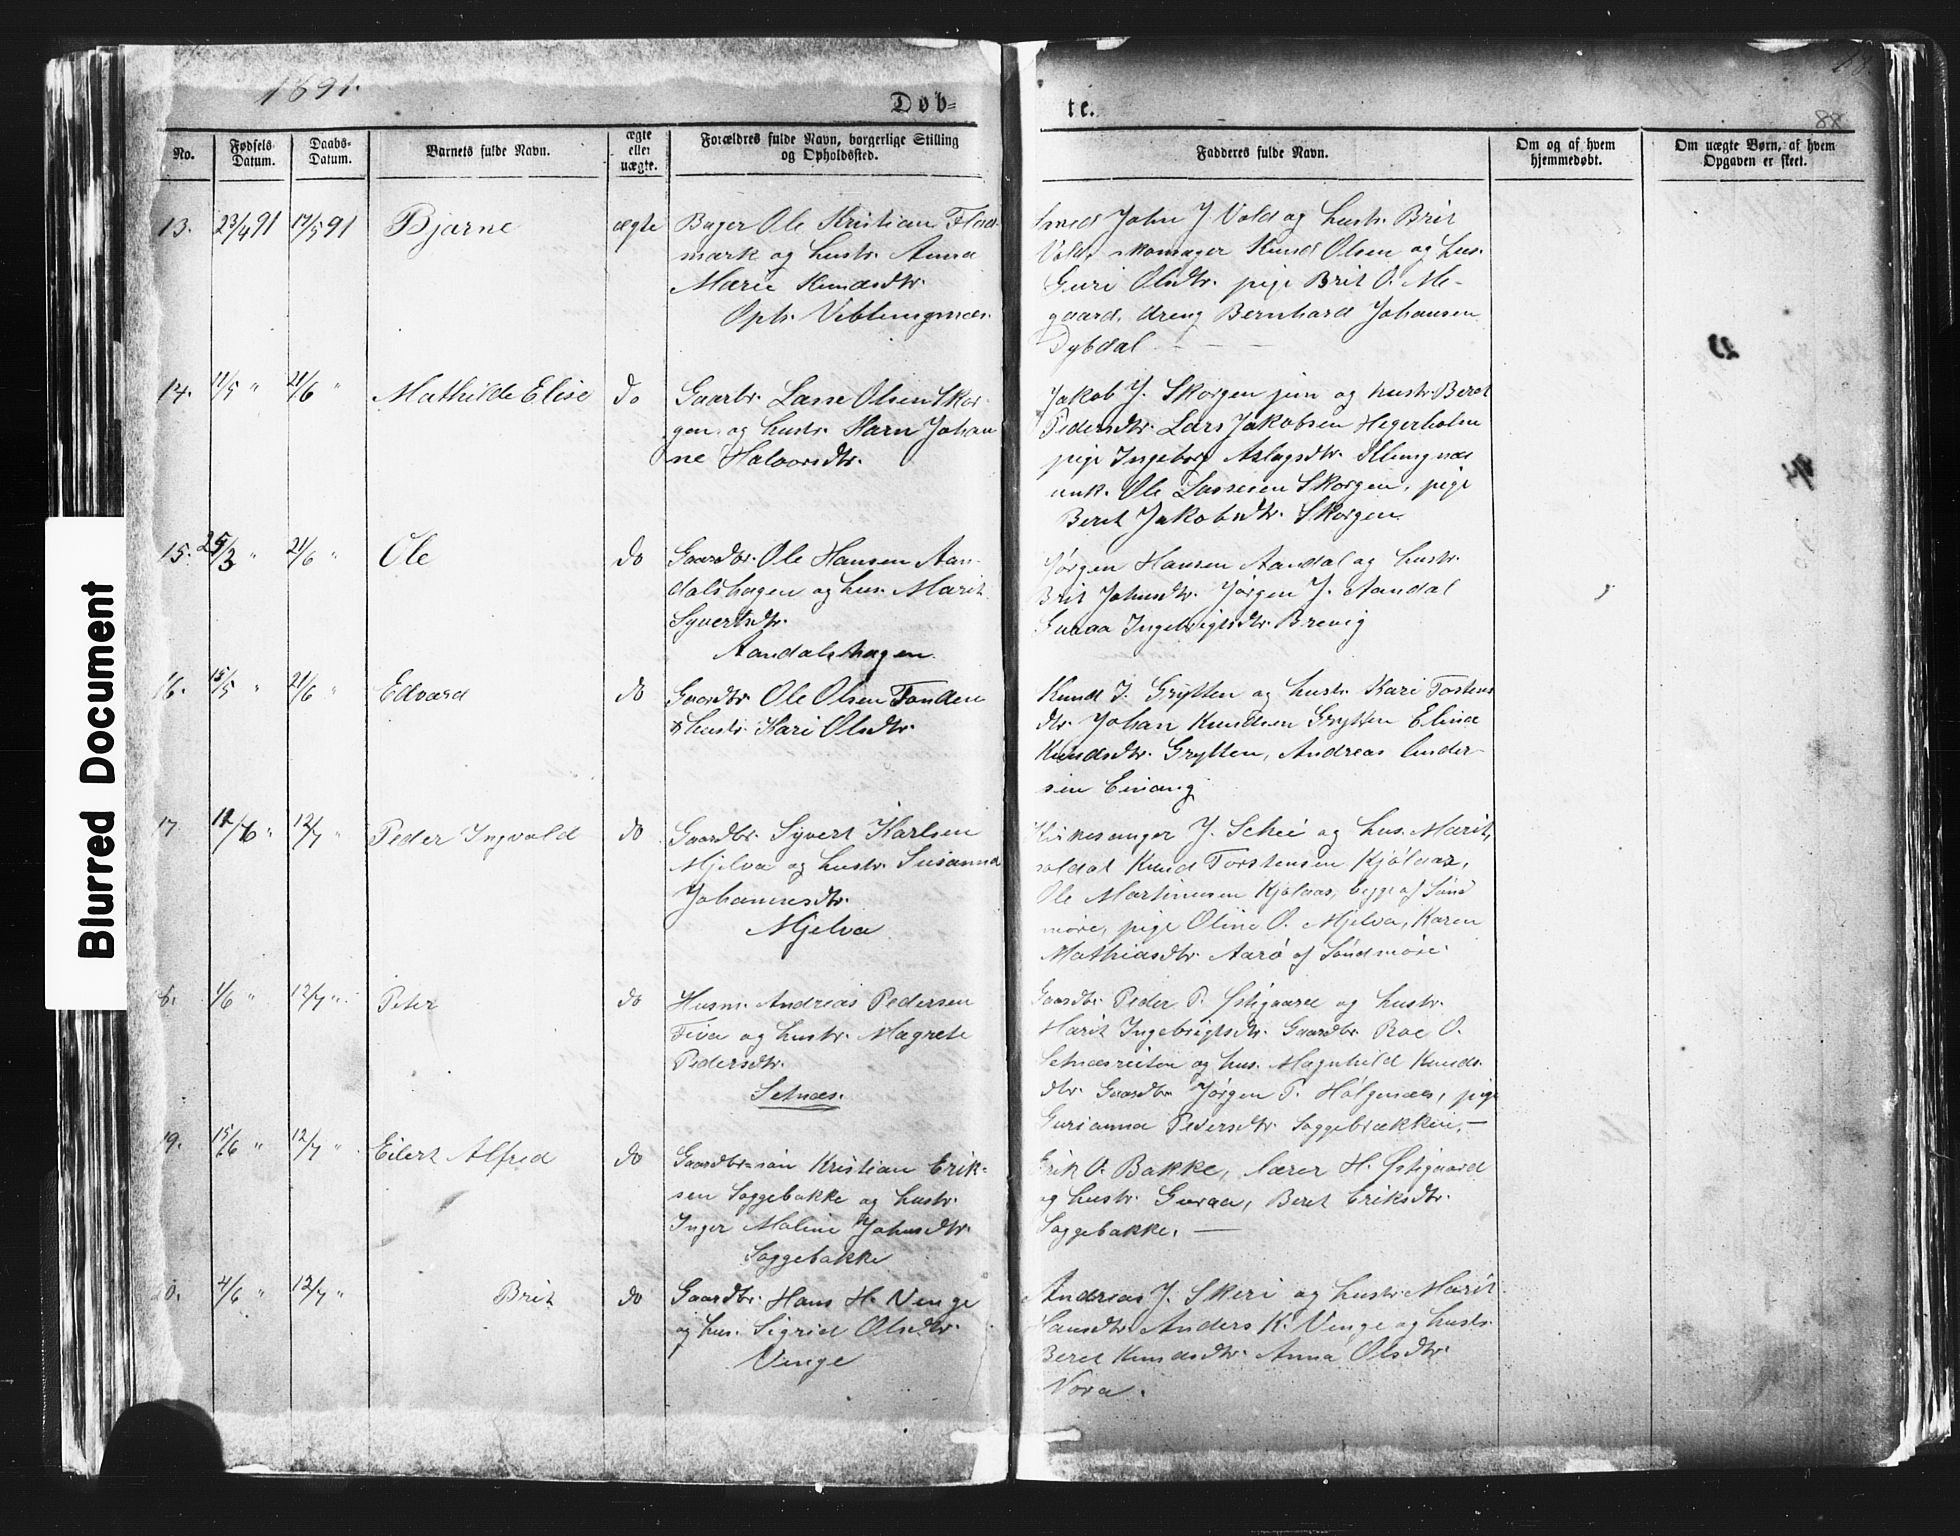 1891.
88.
88
Døb-
te.
No.
Fødsels
Datum.
Daabs-
Datum.
Barnets fulde Navn.
ægte
eller
uægte.
Forældres fulde Navn, borgerlige Stilling
og Opholdssted.
Fadderes fulde Navn.
Om og af hvem
hjemmedøbt.
Om uægte Børn, af hvem
Opgaven er skeet.
13. 23/4 91 17/5 91 Bjarne ægte
Bager Ole Kristian Flad-
mark og hustr. Anna
Marie Knudsdtr.
Oph. Veblungsnæs.
Smed John J. Vold og hustr. Brit
Vold, skomager Knud Olsen og hus.
Guri Olsdtr. pige Brit O. Me-
gaard, dreng Bernhard Johansen
Dybdal
14. 11/5 " 21/6 " Mathilde Elise do
Gaarbr. Lasse Olsen Skor-
gen og hustr. Karn Johan
ne Halvorsdtr.
Jakob J. Skorgen jun og hustr. Beret
Pedersdtr. Lars Jakobsen Hegerholm
pige Ingeborg Aslagsdtr. Klungnæs
unk. Ole Lassesen Skorgen, pige
Beret Jakobsdtr. Skorgen
15. 25/3 " 21/6 " Ole do
Gaardbr. Ole Hansen Aan-
dalshagen og hus. Marit
Syvertsdtr.
Aandalshagen.
Jørgen Hansen Aandal og hustr.
Brit Johnsdtr. Jørgen J. Aandal
Guraa Ingebrigtsdtr. Brevig
16. 15/5 " 21/6 " Edvard do
Gaardbr Ole Olsen Tonden
& hustr. Kari Olsdtr.
Knud J. Grytten og hustr. Kari Tostens
dtr. Johan Knudsen Grytten Elina
Knudsdtr. Grytten, Andreas Ander-
sen Einang
17 12/6 " 12/7 " Peder Ingvald do
Gaardbr. Syvert Karlsen
Mjelva og hustr. Susanna
Johannesdtr.
Mjelva
Kirkesanger J. Schei og hus. Marit,
soldat Knud Torstensen Kjölaas,
Ole Martinusen Kjölaas, begge af Sönd
möre, pige Oline O. Mjelva, Karen
Mathiasdtr Aarö af Söndmöre.
18. 1/6 " 12/7 " Peter do
Husm. Andreas Pedersen
Fiva og hustr. Magrete
Pedersdtr.
Setnæs.
Gaardbr. Peder P. Östigaard og hustr.
Marit Ingebrigtsdtr. Gaardbr. Roe O.
Setnæsreiten og hus. Magnhild Knuds
dtr. Gaardbr Jörgen P. Hölgenæs, pige
Gurianna Pedersdtr. Soggebrækken. —
19. 15/6 " 12/7 " Eilert Alfred do
Gaardbr-sön Kristian Erik-
sen Soggebakke og hustr.
Inger Maline Johnsdtr.
Soggebakke
Erik O. Bakke, lærer H. Östigaard
og hustr. Guraa, Beret Eriksdtr.
Soggebakke. —
20. 4/6 " 12/7 " Brit do
Gaardbr. Hans H. Venge
og hus. Sigrid Olsdtr.
Venge
Andreas J. Skeri og hustr. Marit
Hansdtr. Anders K. Venge og hustr.
Beret Knudsdtr. Anna Olsdtr.
Vora.
Blurred Document